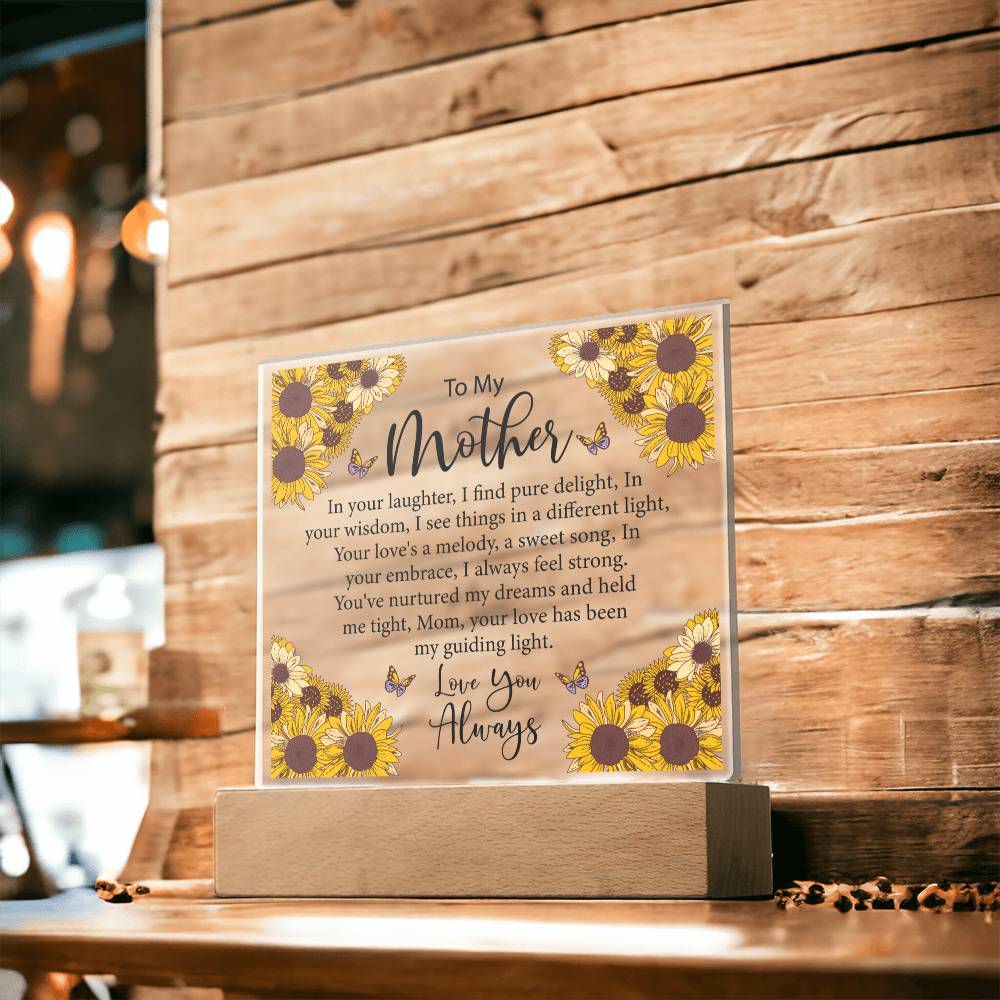 To My
Mother
In your laughter, I find pure delight, In
your wisdom, I see things in a different light,
Your love's a melody, a sweet song, In
your embrace, I always feel strong.
You've nurtured my dreams and held
me tight, Mom, your love has been
my guiding light.
Love You
Always